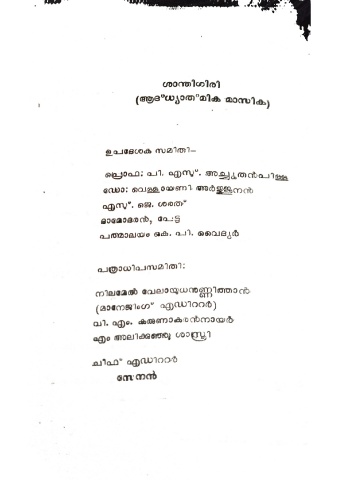 ശാന്തിഗിരി
(ആദ്ധ്യാത്മിക മാസിക)
ഉപദേശക സമിതി—
പ്രൊഫ: പി. എസ്. അച്യുതൻപിള്ള
ഡോ: വെള്ളായണി അർജ്ജുനൻ
എസ്. ജെ. ശരത്
ദാമോദരൻ, പേട്ട
പത്മാലയം കെ. പി. വൈദ്യർ
പത്രാധിപസമിതി:
നിലമേൽ വേലായുധനുണ്ണിത്താൻ
(മാനേജിംഗ് എഡിററർ)
വി. എം. കരുണാകരൻനായർ
എം അലിക്കുഞ്ഞു ശാസ്ത്രി
ചീഫ് എഡിററർ
സേനൻ